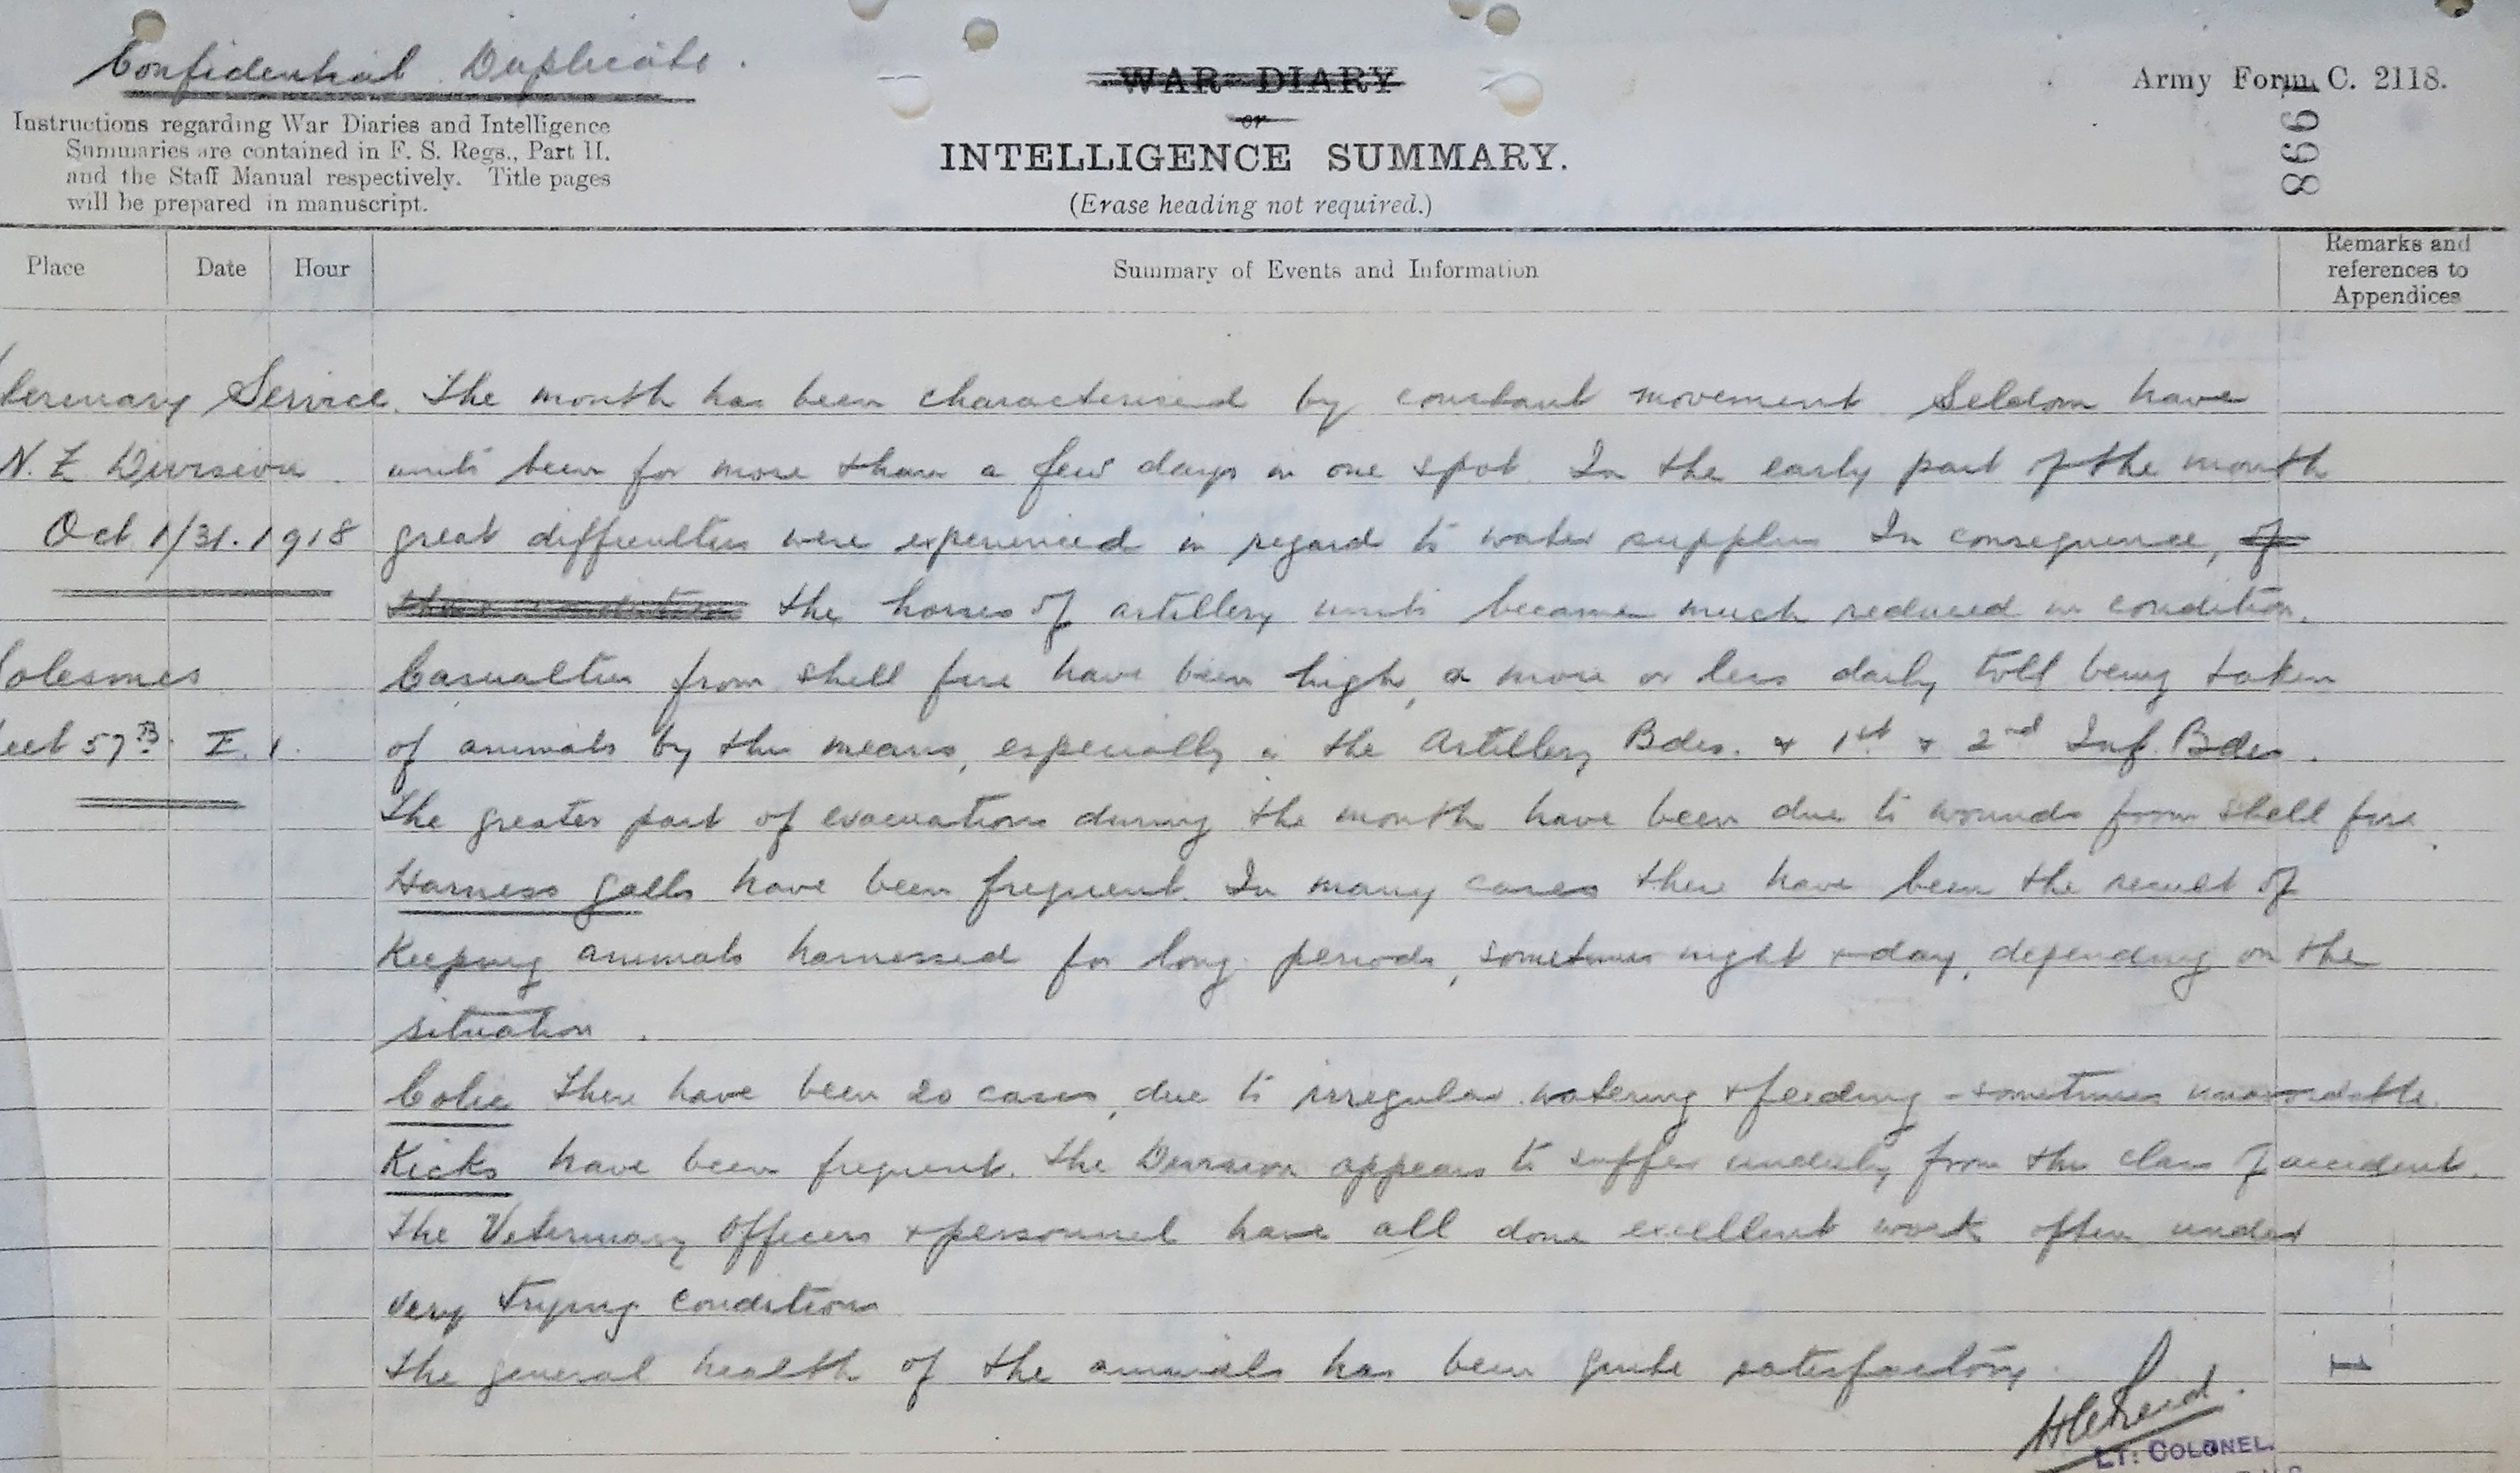 Confidential Duplicate.
WAR DIARY
or
INTELLIGENCE SUMMARY.
(Erase heading not required.)
Army Form C. 2118.
866 1
Instructions regarding War Diaries and Intelligence
Summaries are contained in F. S. Regs., Part II.
and the Staff Manual respectively. Title pages
will be prepared in manuscript.
Place Date Hour Summary of Events and Information Remarks and
references to
Appendices
terinary Service. The month has been characterised by constant movement. Seldom have
N. Z Division. units been for more than a few days in one spot. In the early part of the month
Oct 1/31. 1918 great difficulties were experienced in regard to water supplies In consequence, of
these conditions the horses of artillery units became much reduced in condition.
olesmes Casualties from shell fire have been high, a more or less daily toll being taken
eet 57B. E. 1. of animals by this means, especially in the Artillery Bdes. & 1st & 2nd Inf. Bdes.
The greater part of evacuations during the month have been due to wounds from shell fire.
Harness galls have been frequent. In many cases these have been the result of
Keeping animals harnessed for long periods, sometimes night & day, depending on the
situation.
Colic There have been 20 cases, due to irregular watering & feeding - sometimes unavoidable.
Kicks have been frequent. The Division appears to suffer unduly from this class of accident.
The Veterinary Officers & personnel have all done excellent work often under
very trying conditions
The general health of the animals has been quite satisfactory.
LT: COLONEL.